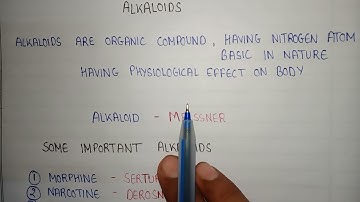 ALKALOIDS
ALKALOIDS ARE ORGANIC COMPOUND, HAVING NITROGEN ATOM
BASIC IN NATURE
HAVING PHYSIOLOGICAL EFFECT ON BODY
ALKALOID -
SOME IMPORTANT ALKALOIDS
① MORPHINE -
② NARCOTINE -